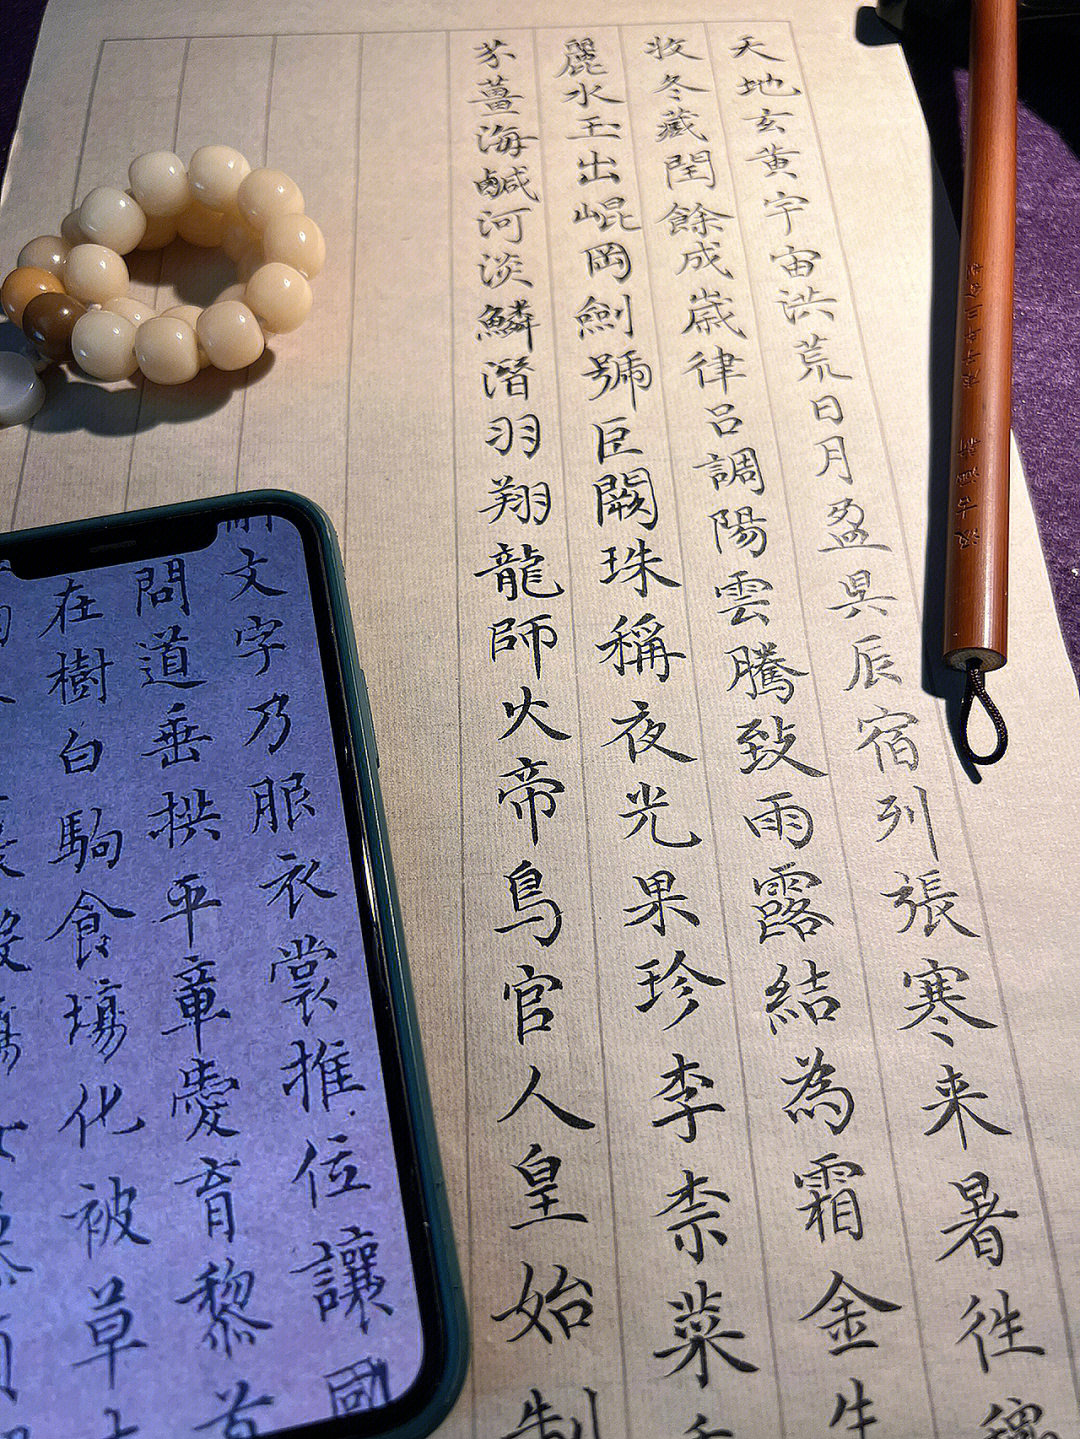 天地玄黃宇宙洪荒日月盈昃辰宿列張寒来暑往穐
收冬藏閏餘成歲律呂調陽雲騰致雨露結為霜金生
麗水玉出崐岡劍號巨闕珠稱夜光果珍李柰菜
芥薑海鹹河淡鱗潛羽翔龍師火帝鳥官人皇始制
文字乃服衣裳推位讓國
問道垂拱平章愛育黎首
在樹白駒食場化被草